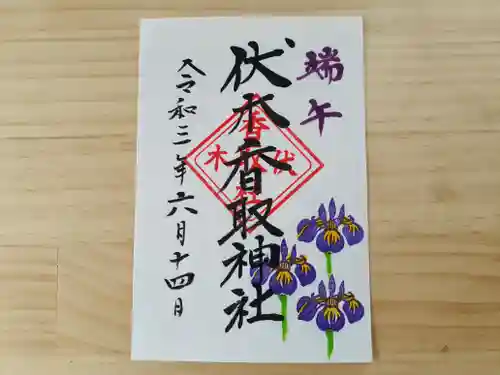 端午
伏木香取神社
香取
伏
木
神社
令和三年六月十四日